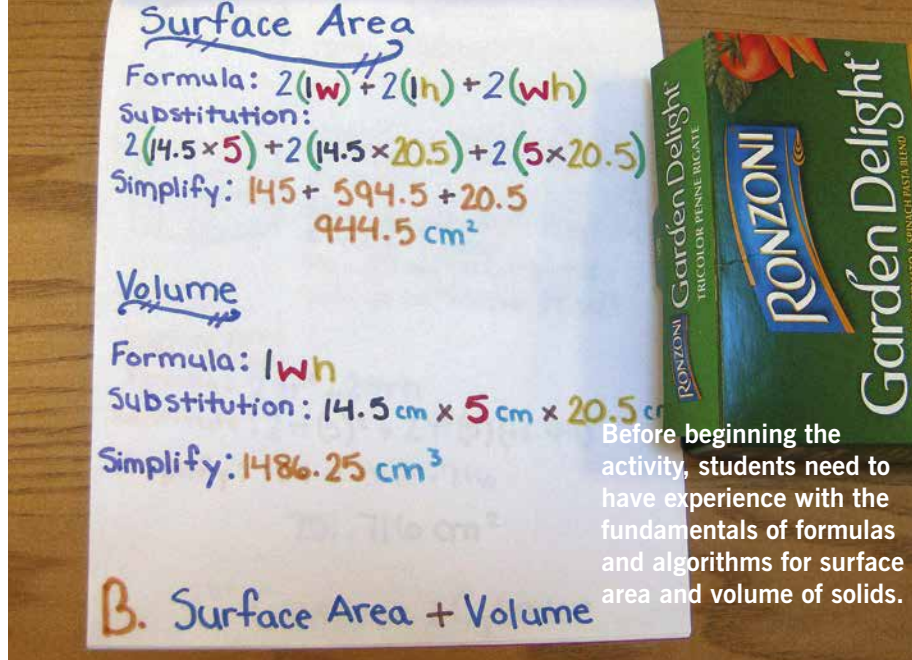 Surface Area
Formula: 2(lw) + 2(lh) + 2(wh)
Substitution:
2(14.5 × 5) + 2(14.5 × 20.5) + 2(5 × 20.5)
Simplify: 145 + 594.5 + 20.5
944.5 cm²
Volume
Formula: lwh
Substitution: 14.5 cm x 5 cm x 20.5 cm
Simplify: 1486.25 cm³
B. Surface Area + Volume
RONZONI Garden Delight
TRICOLOR PENNE RIGATE
RONZONI
Garden Delight
SPINACH PASTA BLEND
Before beginning the
activity, students need to
have experience with the
fundamentals of formulas
and algorithms for surface
area and volume of solids.